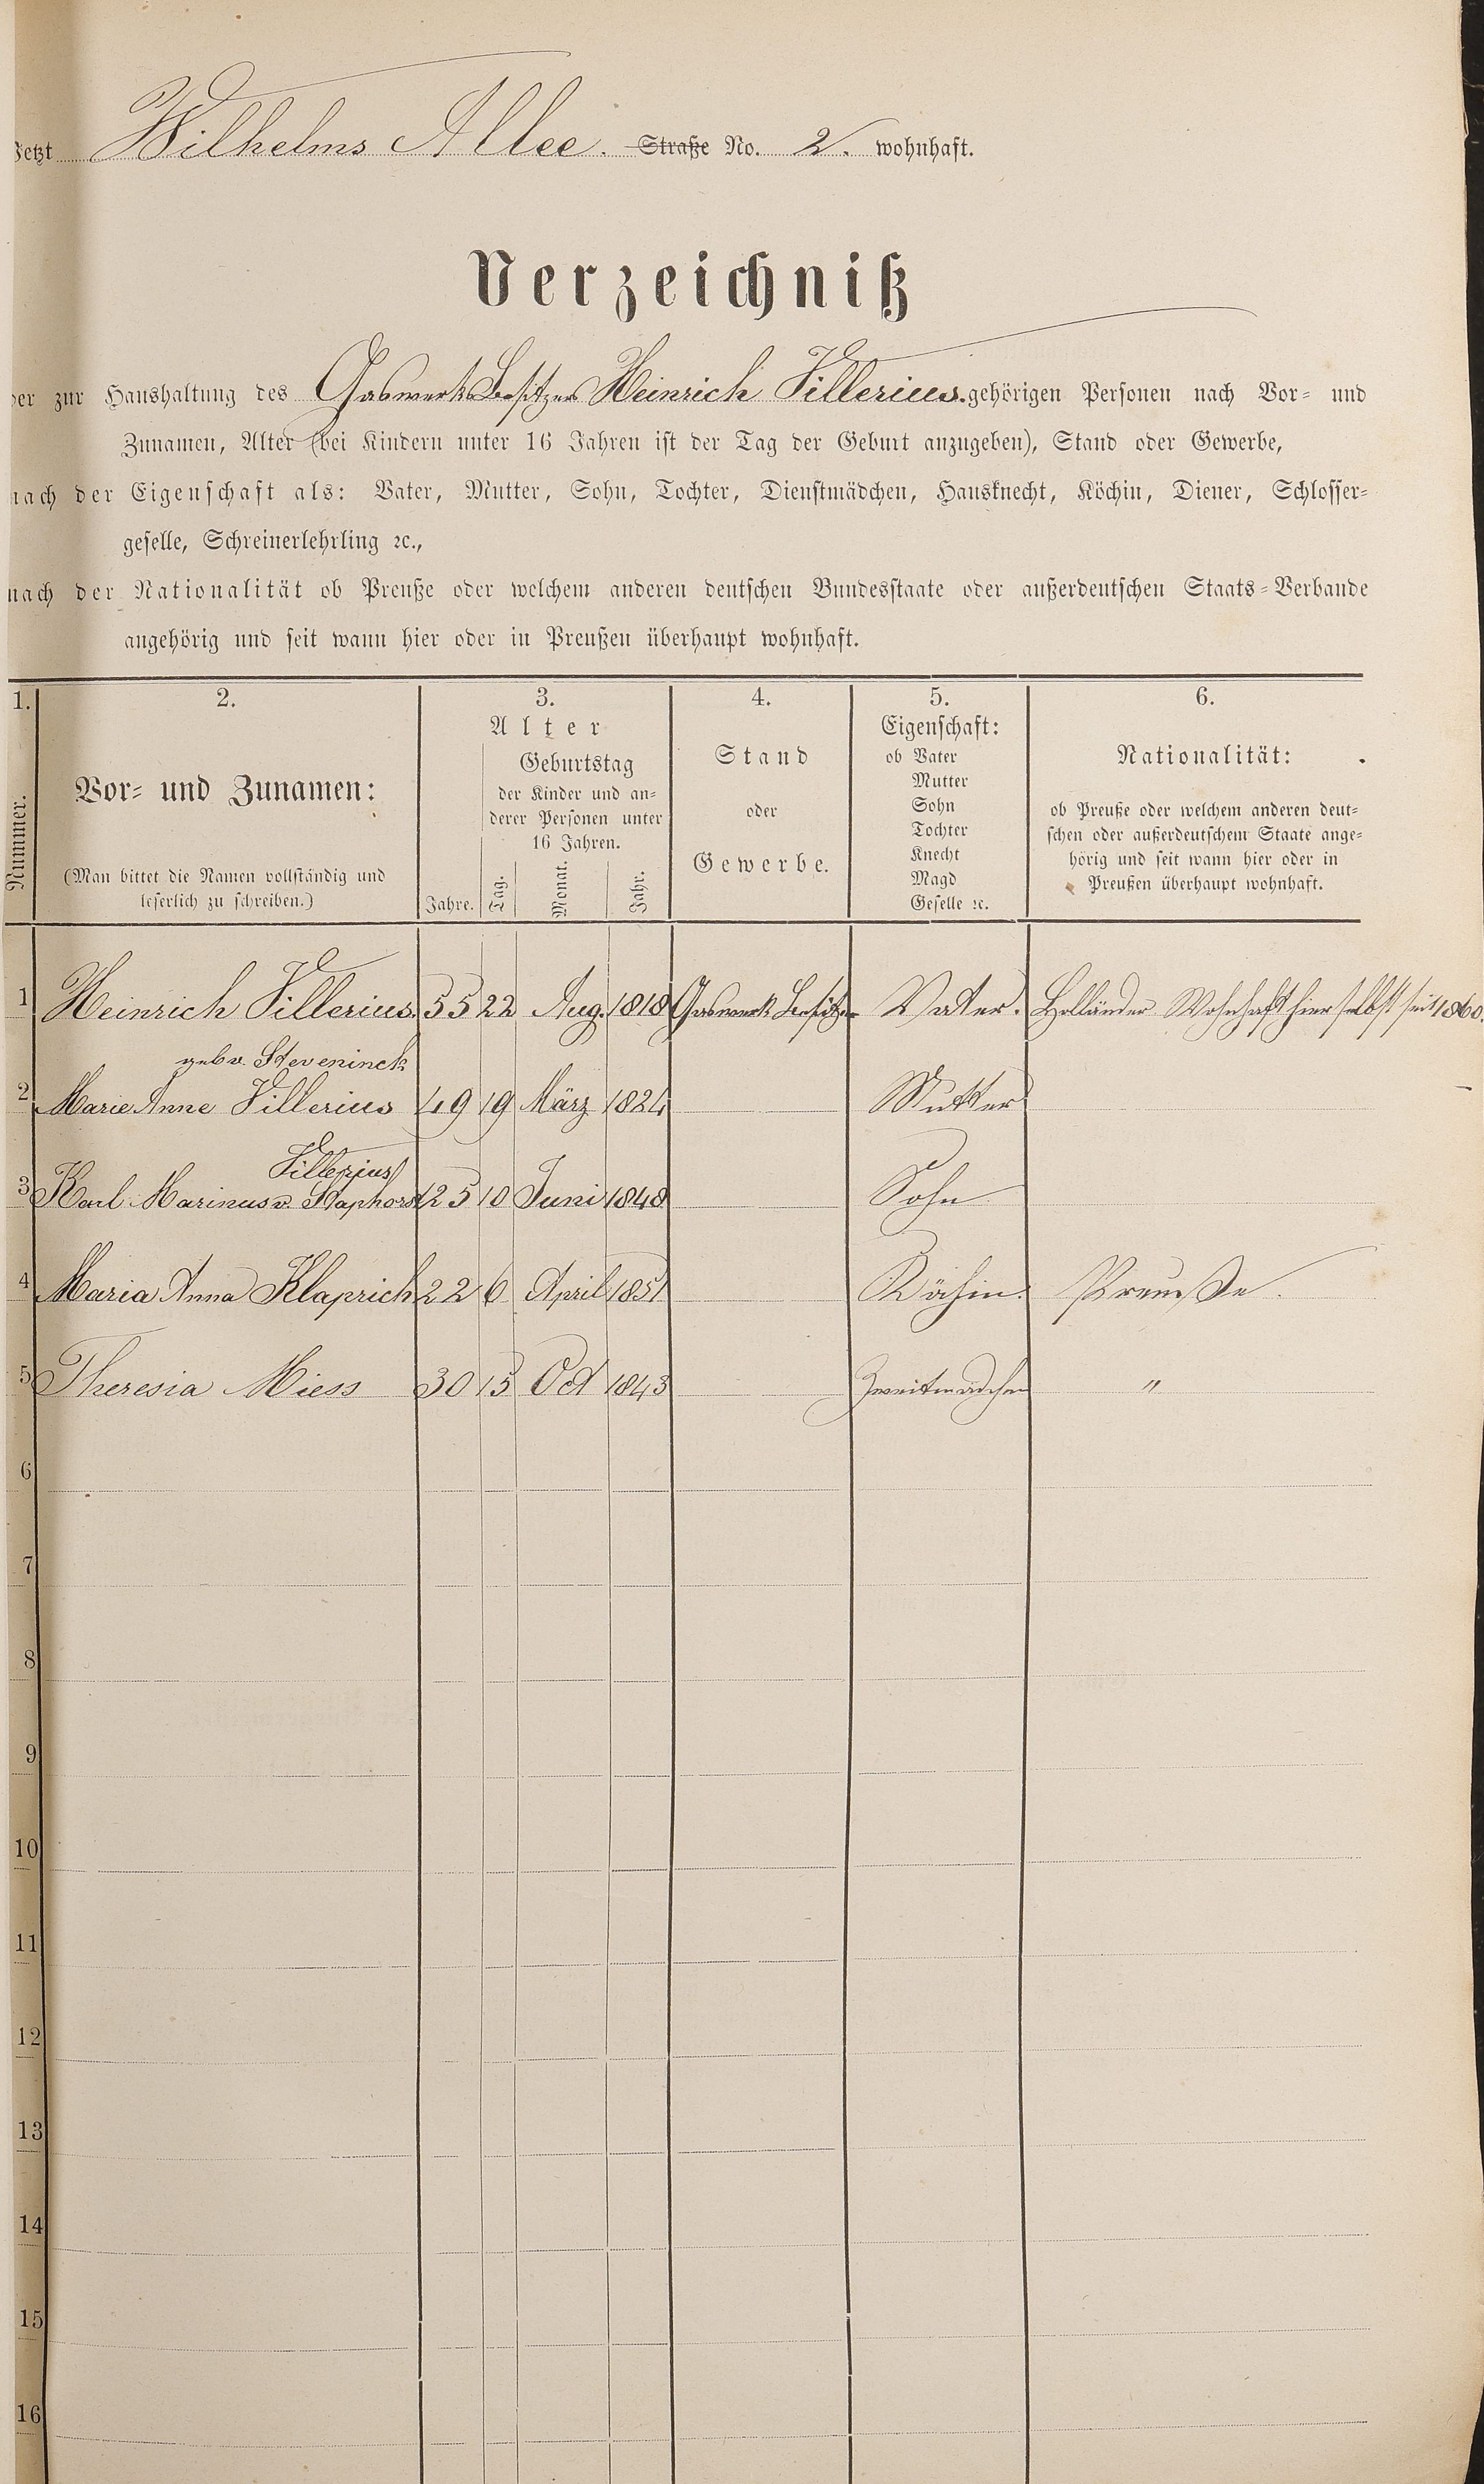 Jetzt Wilhelms Allee. Straße No. 2. wohnhaft.
Verzeichniß
der zur Haushaltung des Gaswerks Besitzers Heinrich Villerius. gehörigen Personen nach Vor- und
Zunamen, Alter (bei Kindern unter 16 Jahren ist der Tag der Geburt anzugeben), Stand oder Gewerbe,
nach der Eigenschaft als: Vater, Mutter, Sohn, Tochter, Dienstmädchen, Hausknecht, Köchin, Diener, Schlosser-
geselle, Schreinerlehrling ꝛc.,
nach der Nationalität ob Preuße oder welchem anderen deutschen Bundesstaate oder außerdeutschen Staats-Verbande
angehörig und seit wann hier oder in Preußen überhaupt wohnhaft.
1. 2. 3. 4. 5. 6.
Nummer.
Vor- und Zunamen:
(Man bittet die Namen vollständig und
leserlich zu schreiben.)
Alter
Jahre.
Geburtstag
der Kinder und an-
derer Personen unter
16 Jahren.
Tag. Monat. Jahr.
Stand
oder
Gewerbe.
Eigenschaft:
ob Vater
Mutter
Sohn
Tochter
Knecht
Magd
Geselle ꝛc.
Nationalität:
ob Preuße oder welchem anderen deut-
schen oder außerdeutschem Staate ange-
hörig und seit wann hier oder in
Preußen überhaupt wohnhaft.
1 Heinrich Villerius. 55 22 Aug. 1818 Gaswerk Besitzer Vater. Holländer Wohnhaft hierselbst seit 1860.
geb v. Steveninck
2 Marie Anne Villerius 49 19 März 1824 Mutter
Villerius
3 Karl Marinus v. Staphorst 25 10 Juni 1848 Sohn
4 Maria Anna Klaprich 22 6 April 1851 Köchin. Preuße.
5 Theresia Miess 30 15 Oct 1843 Zweitmädchen "
6
7
8
9
10
11
12
13
14
15
16